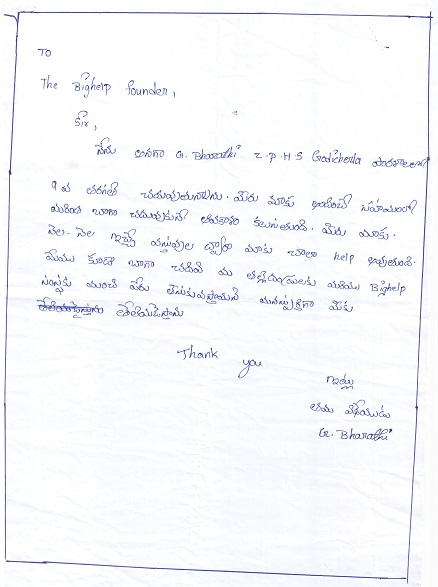 TO
The Bighelp founder,
Sir,
నేను అనగా G. Bharathi Z.P.H.S Godicherla పాఠశాలలో
9 వ తరగతి చదువుతున్నాను. మీరు మాకు అందించే సహాయంతో
మరింత బాగా చదువుకునే అవకాశం కలుగుతుంది. మీరు మాకు.
నెల-నెల ఇచ్చే వస్తువుల ద్వారా మాకు చాలా help అవుతుంది.
మేము కూడా బాగా చదివి మా తల్లిదండ్రులకు మరియు Bighelp
సంస్థకు మంచి పేరు తీసుకువస్తామని మనస్పూర్తిగా మీకు
తెలియజేస్తాను తెలియజేస్తాను
Thank you
ఇట్లు
తమ విధేయుడు
G. Bharathi